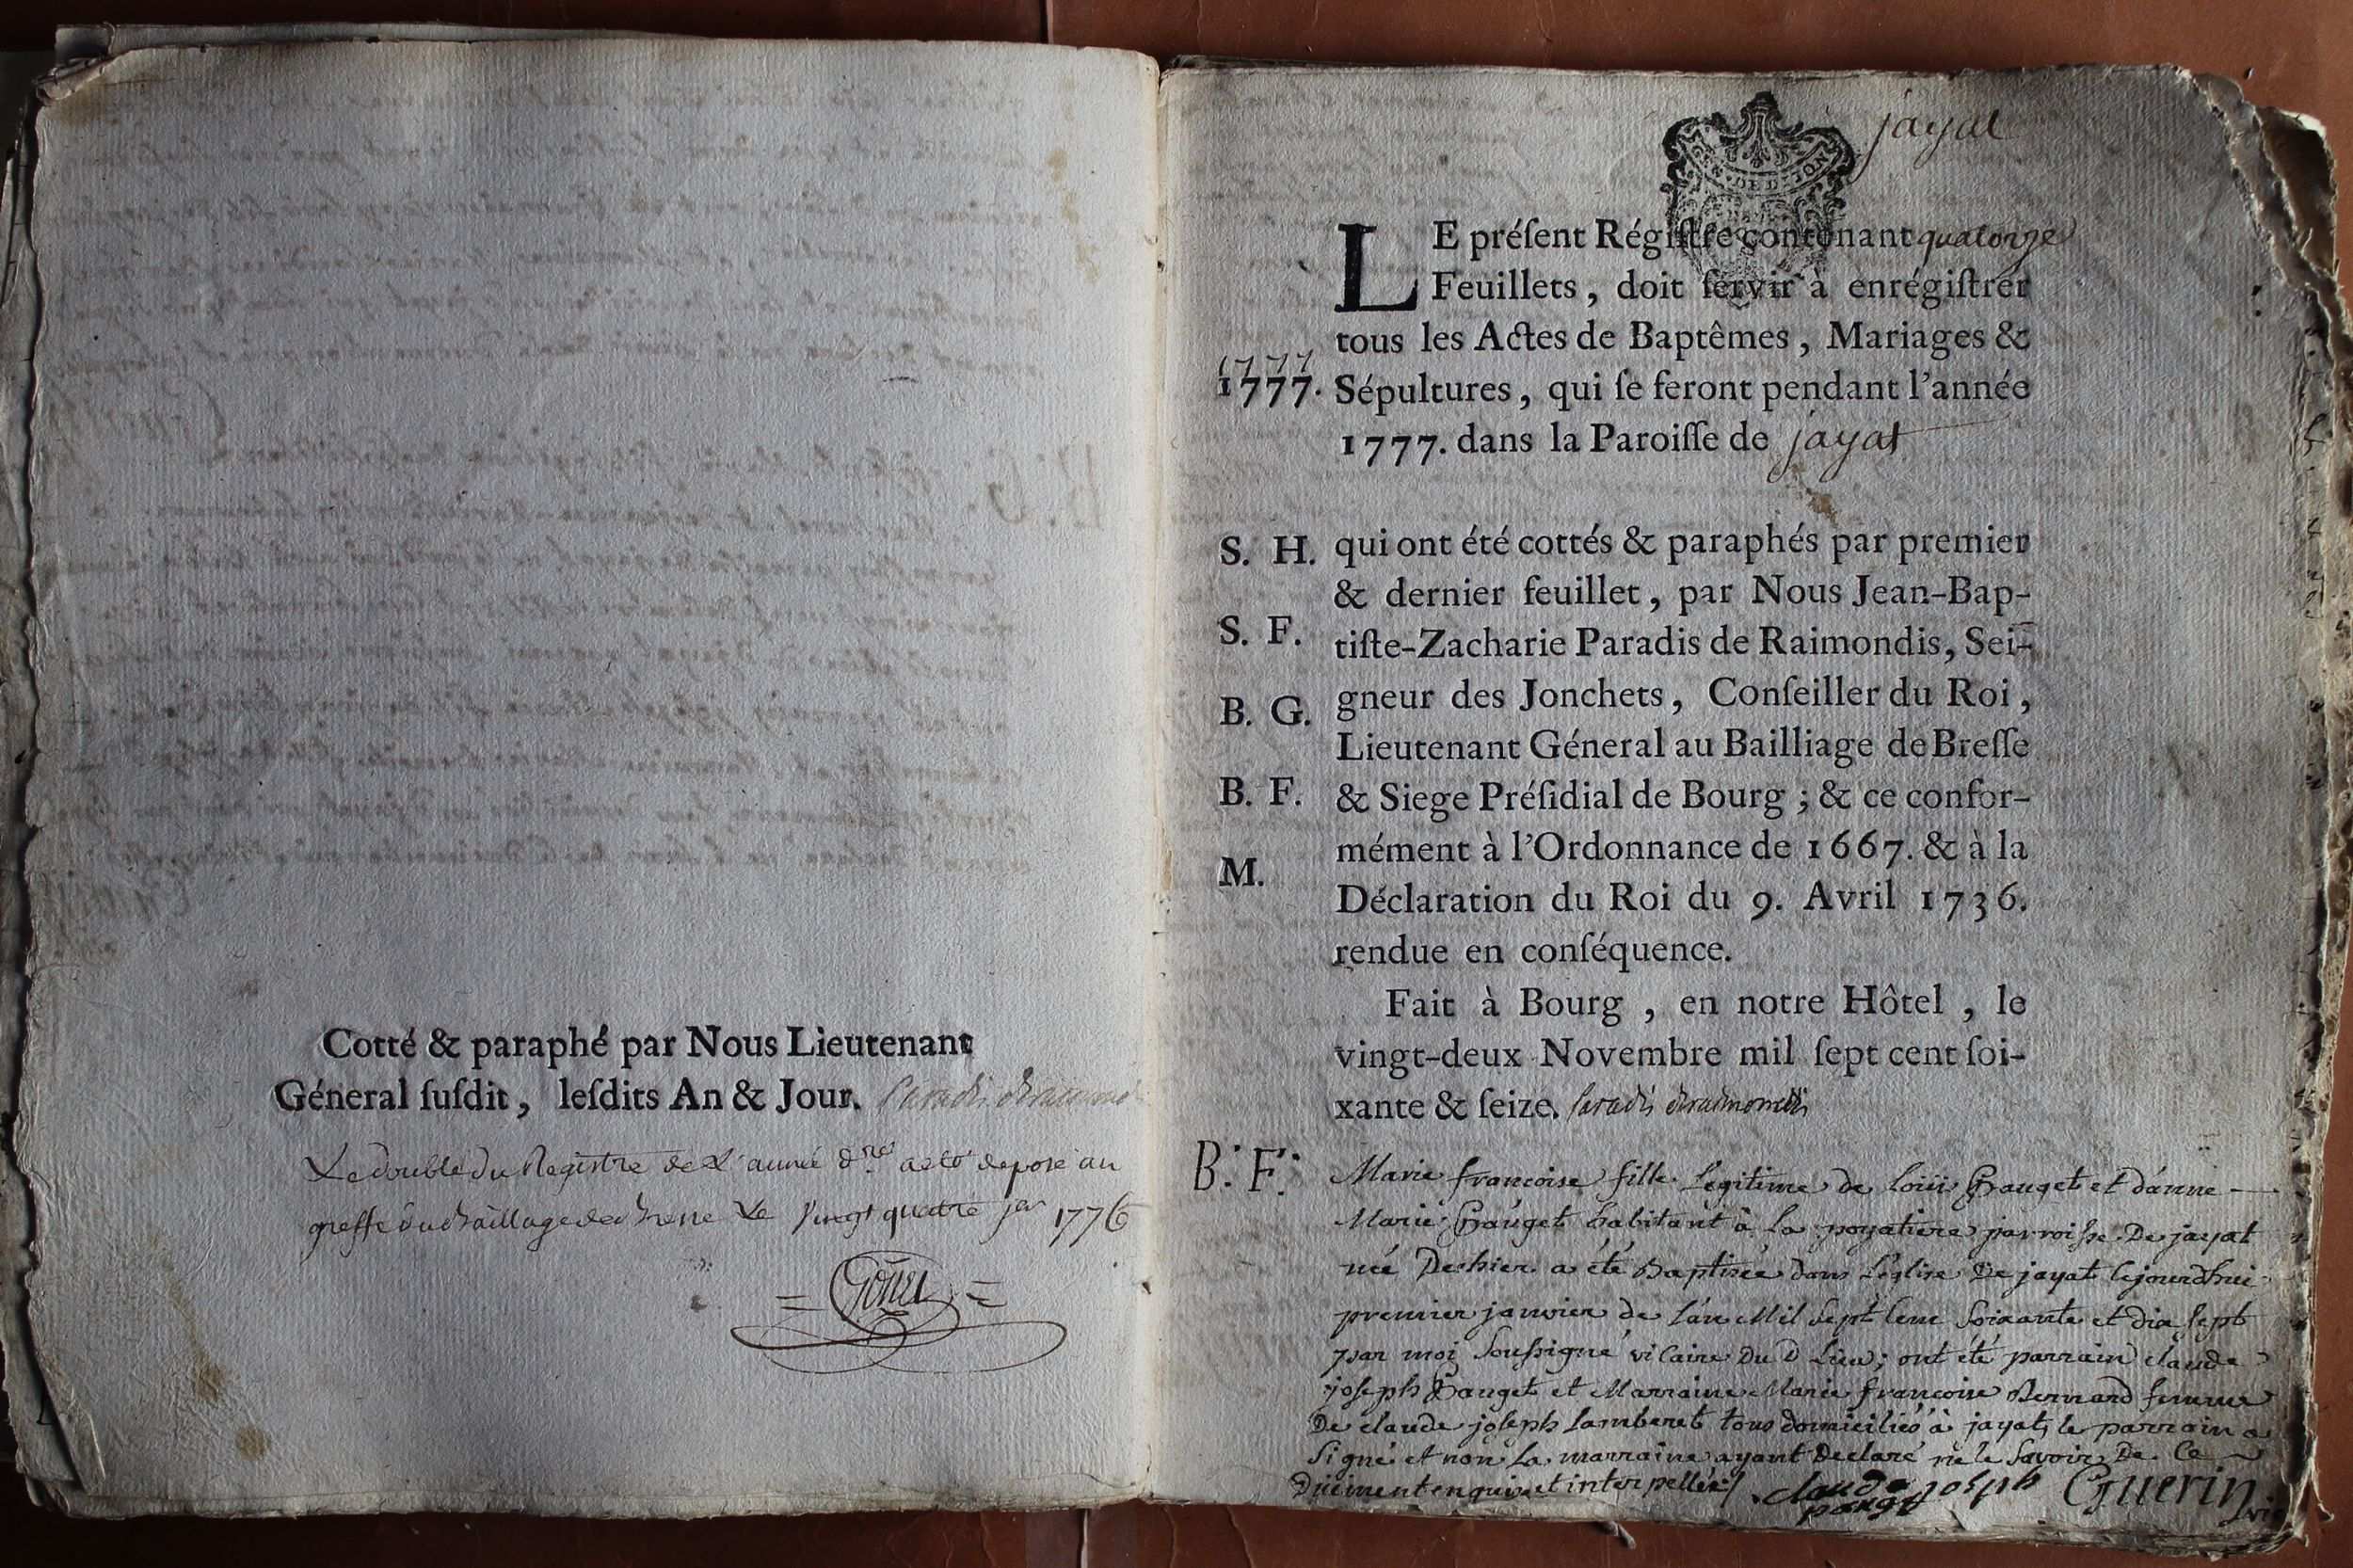 Cotté & paraphé par Nous Lieutenant
Géneral ſuſdit, leſdits An & Jour. Paradis deraimondis
Le double du Registre de L'année d.re a eté deposé au
greffe du baillage de bresse Le vingt quatre jer 1776
jayat
GEN. DE DIJON
LE préſent Régiſtre contenant quatorze
Feuillets, doit ſervir à enrégiſtrer
tous les Actes de Baptêmes, Mariages &
1777
1777. Sépultures, qui ſe feront pendant l'année
1777. dans la Paroiſſe de jayat
S. H. qui ont été cottés & paraphés par premier
& dernier feuillet, par Nous Jean-Bap-
S. F. tiſte-Zacharie Paradis de Raimondis, Sei-
B. G. gneur des Jonchets, Conſeiller du Roi,
Lieutenant Géneral au Bailliage de Breſſe
B. F. & Siege Préſidial de Bourg; & ce confor-
mément à l'Ordonnance de 1667. & à la
M. Déclaration du Roi du 9. Avril 1736.
rendue en conſéquence.
Fait à Bourg, en notre Hôtel, le
vingt-deux Novembre mil ſept cent ſoi-
xante & ſeize. Paradis deraimondis
B: F: Marie francoise fille legitime de loüi Pauget et d'anne
Marie Pauget habitant à la poyatiere parroisse De jayat
née Dechier a été Baptisée dans L'eglise De jayat cejourdhui
premier janvier de l'an Mil Sept Cent Soixante et dix Sept
par moi Soussigné vicaire Du D Lieu; ont été parrain claude
joseph Pauget et Marraine Marie françoise Bernard femme
De claude joseph Lamberet tous domiciliés à jayat, le parrain a
Signé et non la marraine ayant Declaré ne le Savoir De Ce
Düement enquise et interpellée/. claude joseph Guerin vic
pauget